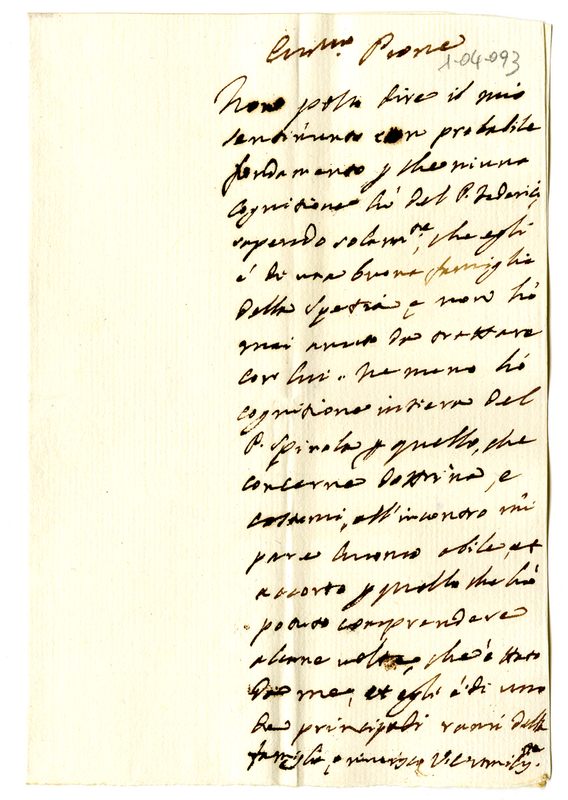 1-04-093
Non posso dire il mio
sentimento con probabile
fondamento p che niuna
cognitione hò del P. Federici,
sapendo solam.te, che egli
é di una buona famiglia
della Spetia, e non hò
mai avuto da trattare
con lui. Ne meno hò
cognitione intiera del
P. Spinola p quello, che
concerne dottrina, e
costumi, all'incontro mi
pare huomo abile, et
accorto p quello che hò
potuto comprendere
alcune volte, che è stato
da me, et egli é di uno
de principali rami della
famiglia, e riverisco